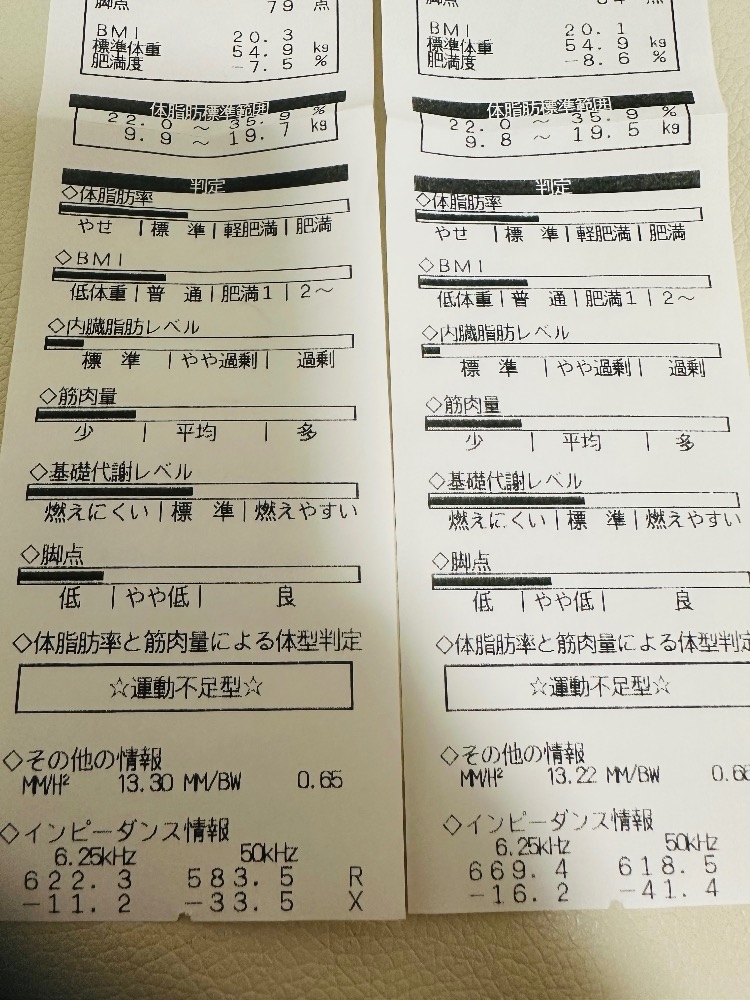 脚点 79 点
BMI 20.3
標準体重 54.9 kg
肥満度 -7.5 %
体脂肪標準範囲
22.0 ~ 35.9 %
9.9 ~ 19.7 kg
判定
◇体脂肪率
やせ | 標 準 | 軽肥満 | 肥満
◇BMI
低体重 | 普 通 | 肥満1 | 2~
◇内臓脂肪レベル
標 準 | やや過剰 | 過剰
◇筋肉量
少 | 平均 | 多
◇基礎代謝レベル
燃えにくい | 標 準 | 燃えやすい
◇脚点
低 | やや低 | 良
◇体脂肪率と筋肉量による体型判定
☆運動不足型☆
◇その他の情報
MM/H² 13.30 MM/BW 0.65
◇インピーダンス情報
6.25kHz 50kHz
622.3 583.5 R
-11.2 -33.5 X
BMI 20.1
標準体重 54.9 kg
肥満度 -8.6 %
体脂肪標準範囲
22.0 ~ 35.9 %
9.8 ~ 19.5 kg
判定
◇体脂肪率
やせ | 標 準 | 軽肥満 | 肥満
◇BMI
低体重 | 普 通 | 肥満1 | 2~
◇内臓脂肪レベル
標 準 | やや過剰 | 過剰
◇筋肉量
少 | 平均 | 多
◇基礎代謝レベル
燃えにくい | 標 準 | 燃えやすい
◇脚点
低 | やや低 | 良
◇体脂肪率と筋肉量による体型判定
☆運動不足型☆
◇その他の情報
MM/H² 13.22 MM/BW
◇インピーダンス情報
6.25kHz 50kHz
669.4 618.5
-16.2 -41.4